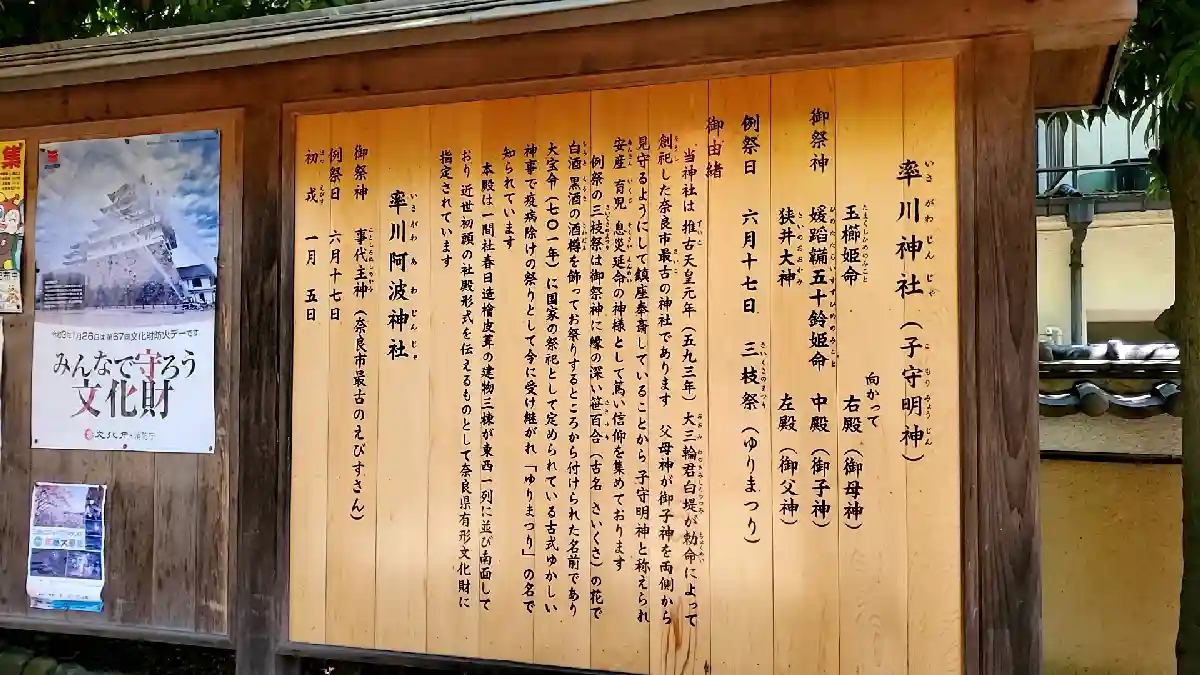 率川神社（子守明神）
いさがわじんじゃ
こもりみょうじん
向かって
玉櫛姫命 右殿（御母神）
たまくしひめのみこと
御祭神 媛蹈韛五十鈴姫命 中殿（御子神）
ひめたたらいすずひめのみこと
狭井大神 左殿（御父神）
さいのおおかみ
例祭日 六月十七日 三枝祭（ゆりまつり）
さいくさのまつり
御由緒
当神社は 推古天皇元年（五九三年）大三輪君白堤が勅命によって
創祀した奈良市最古の神社であります 父母神が御子神を両側から
見守るようにして鎮座奉斎していることから 子守明神と称えられ
安産 育児 息災延命の神様として篤い信仰を集めております
例祭の三枝祭は御祭神に縁の深い笹百合（古名 さいくさ）の花で
白酒 黒酒の酒樽を飾ってお祭りするところから付けられた名前であり
大宝令（七〇一年）に国家の祭祀として定められている古式ゆかしい
神事で疫病除けの祭りとして今に受け継がれ「ゆりまつり」の名で
知られています
本殿は一間社春日造檜皮葺の建物三棟が東西一列に並び南面して
おり 近世初頭の社殿形式を伝えるものとして奈良県有形文化財に
指定されています
率川阿波神社
いさがわあわじんじゃ
御祭神 事代主神（奈良市最古のえびすさん）
ことしろぬしのかみ
例祭日 六月十七日
初戎 一月 五日
はつえびす
集
令和3年1月26日は第67回文化財防火デーです
みんなで守ろう
文化財
文化庁・消防庁